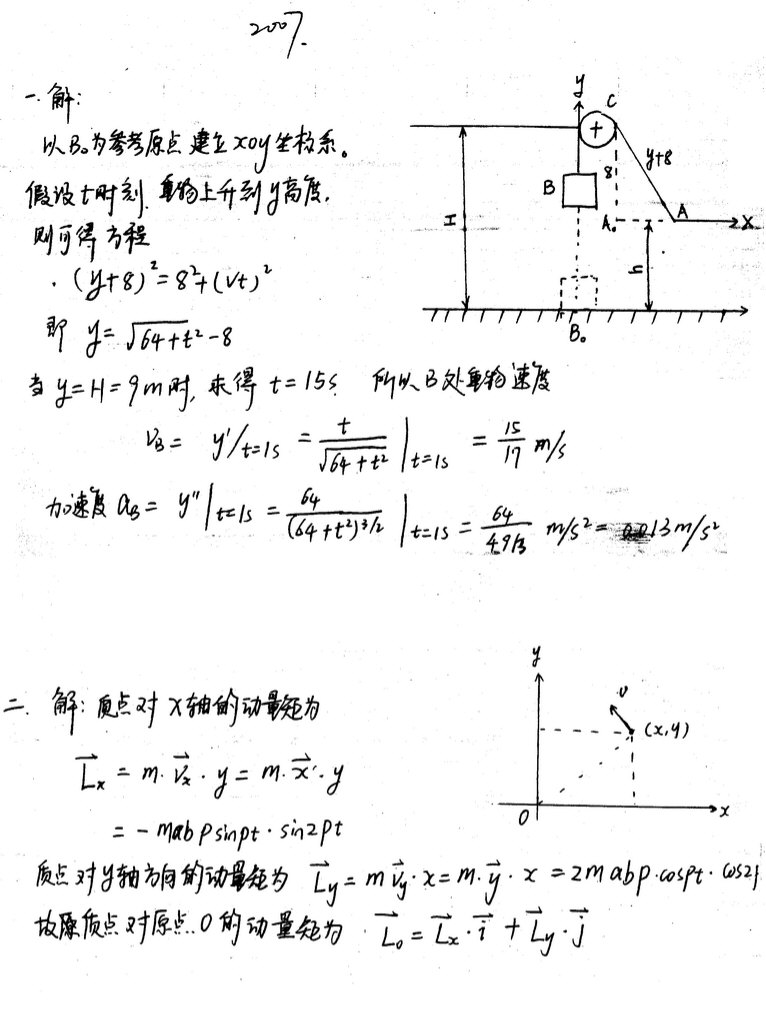 2007.
一. 解:
以B₀为参考原点建立xoy坐标系。
假设t时刻, 重物上升到y高度,
则可得方程
(y+8)²=8²+(vt)²
即 y=√(64+t²)-8
当y=H=9m时, 求得 t=15s. 所以B处重物速度
v_B= y'/t=1s = t/√(64+t²) |t=1s = 15/17 m/s
加速度 a_B= y''|t=1s = 64/(64+t²)^(3/2) |t=1s = 64/4913 m/s² = 0.013m/s²
y
C
y+8
8
B
A₀
A
X
H
h
B₀
二. 解: 质点对X轴的动量矩为
L⃗x = m·v⃗x·y = m·x⃗'·y
= -mabp sinpt·sin2pt
质点对y轴方向的动量矩为 L⃗y=mv⃗y·x=m·y⃗·x=2mabp·cospt·cos2p
故原质点对原点O的动量矩为 L⃗₀=L⃗x·i⃗+L⃗y·j⃗
y
v
(x,y)
O
x